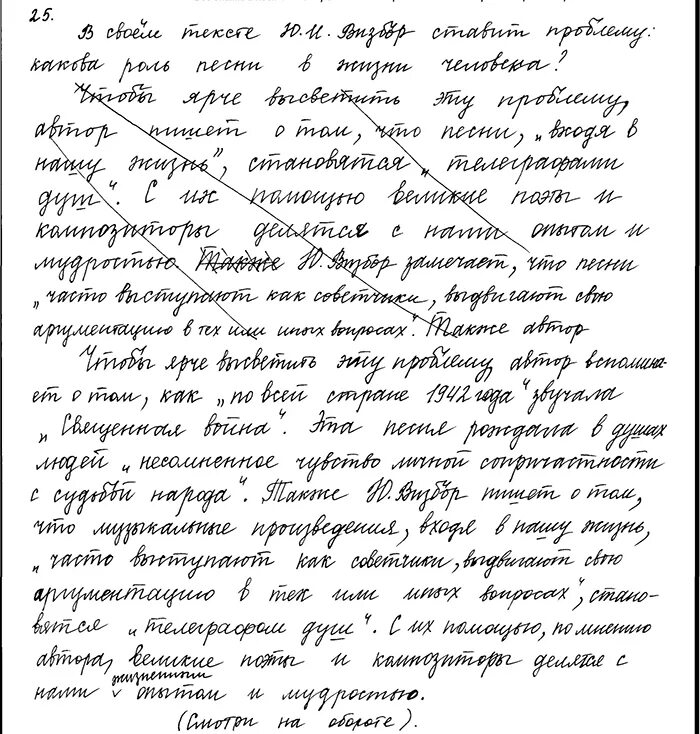 25.
В своём тексте Ю.И. Визбор ставит проблему:
какова роль песни в жизни человека?
Чтобы ярче высветить эту проблему,
автор пишет о том, что песни, „входя в
нашу жизнь", становятся „телеграфами
душ". С их помощью великие поэты и
композиторы делятся с нами опытом и
мудростью. Также Ю. Визбор замечает, что песни
„часто выступают как советчики, выдвигают свою
аргументацию в тех или иных вопросах". Также автор
Чтобы ярче высветить эту проблему, автор вспомина-
ет о том, как „по всей стране 1942 года" звучала
„Священная война". Эта песня рождала в душах
людей „несомненное чувство личной сопричастности
с судьбой народа". Также Ю. Визбор пишет о том,
что музыкальные произведения, входя в нашу жизнь,
„часто выступают как советчики, выдвигают свою
аргументацию в тех или иных вопросах", стано-
вятся „телеграфом душ". С их помощью, по мнению
автора, великие поэты и композиторы делятся с
нами жизненным опытом и мудростью.
(Смотри на обороте).